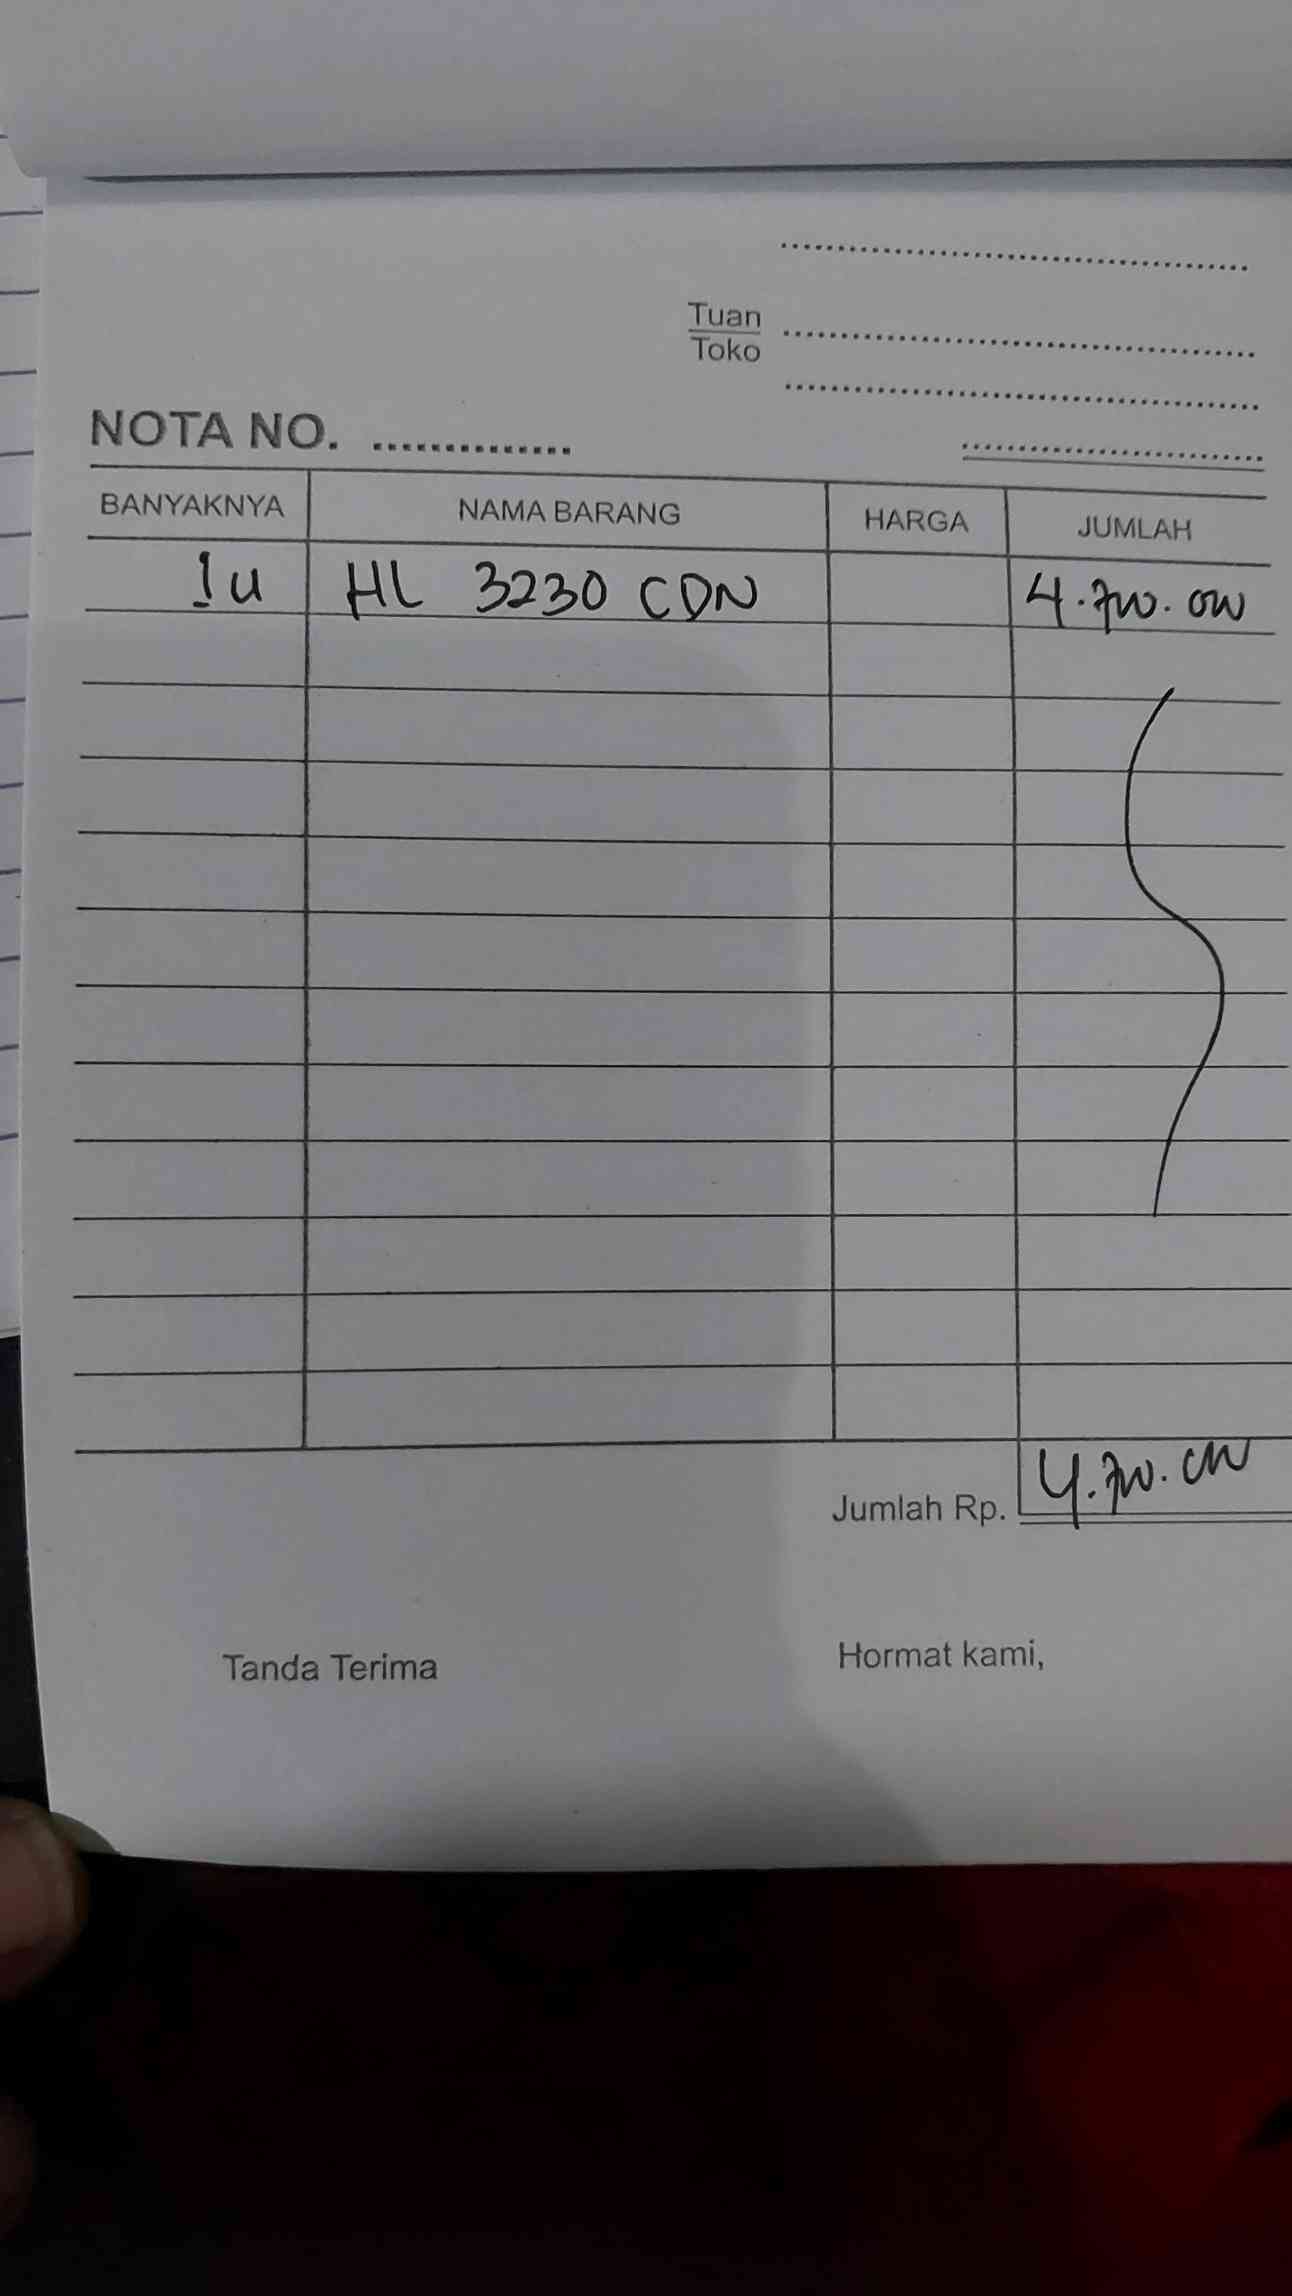 Tuan
Toko
NOTA NO.
BANYAKNYA NAMA BARANG HARGA JUMLAH
1 u HL 3230 CDN 4.700.000
Jumlah Rp. 4.700.000
Tanda Terima Hormat kami,